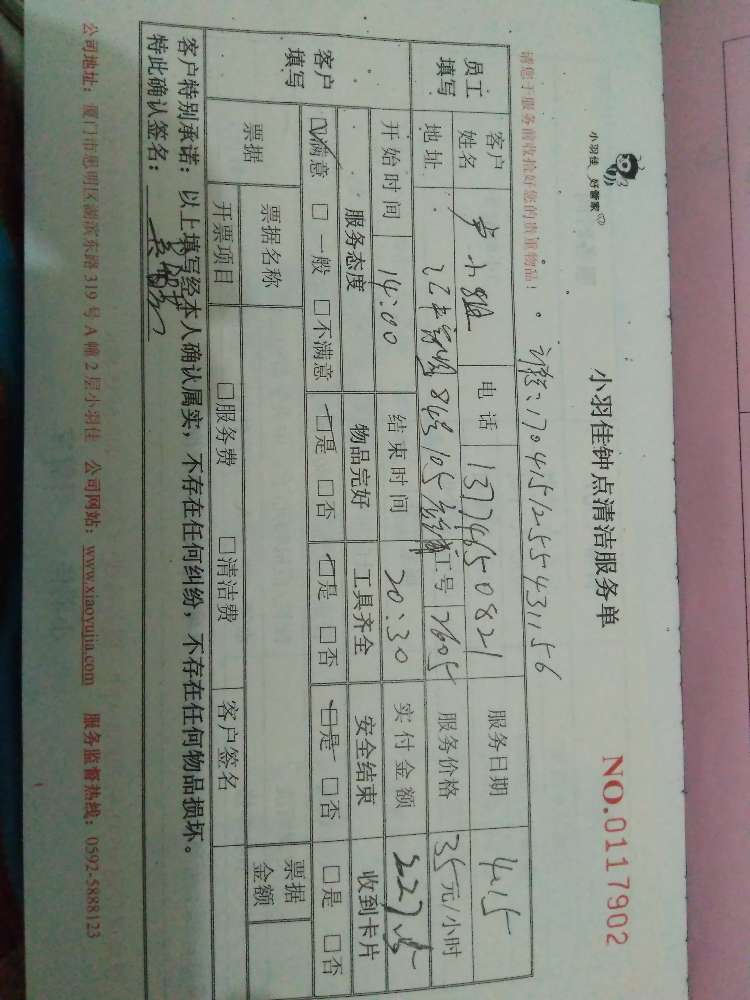 小羽佳 好管家
小羽佳钟点清洁服务单
NO.0117902
请您于服务前收拾好您的贵重物品!
1704151255431156
员工填写
客户姓名 卢小姐 电话 13774650821 服务日期 4.15
地址 84号105 工号 2605 服务价格 35元/小时
开始时间 14:00 结束时间 20:30 实付金额 227.5
客户填写
服务态度 物品完好 工具齐全 安全结束 收到卡片
☑满意 □一般 □不满意 ☑是 □否 ☑是 □否 ☑是 □否 □是 □否
票据 票据名称 票据金额
开票项目 □服务费 □清洁费 客户签名
客户特别承诺:以上填写经本人确认属实,不存在任何纠纷,不存在任何物品损坏。
特此确认签名:
公司地址:厦门市思明区湖滨东路319号A幢2层小羽佳 公司网站:www.xiaoyujia.com 服务监督热线:0592-5888123